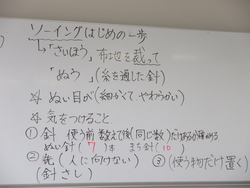 ソーイングはじめの一歩
→「さいほう」布地を裁って
「ぬう」(糸を通した針)
☆ ぬい目が(細かくて やわらかい)
☆ 気をつけること
① 針 使う前 数えて後(同じ数)だけあるか確める
ぬい針(7)本 まち針(10)
② 鋏(人に向けない) ③(使う物だけ置く)
(針さし)